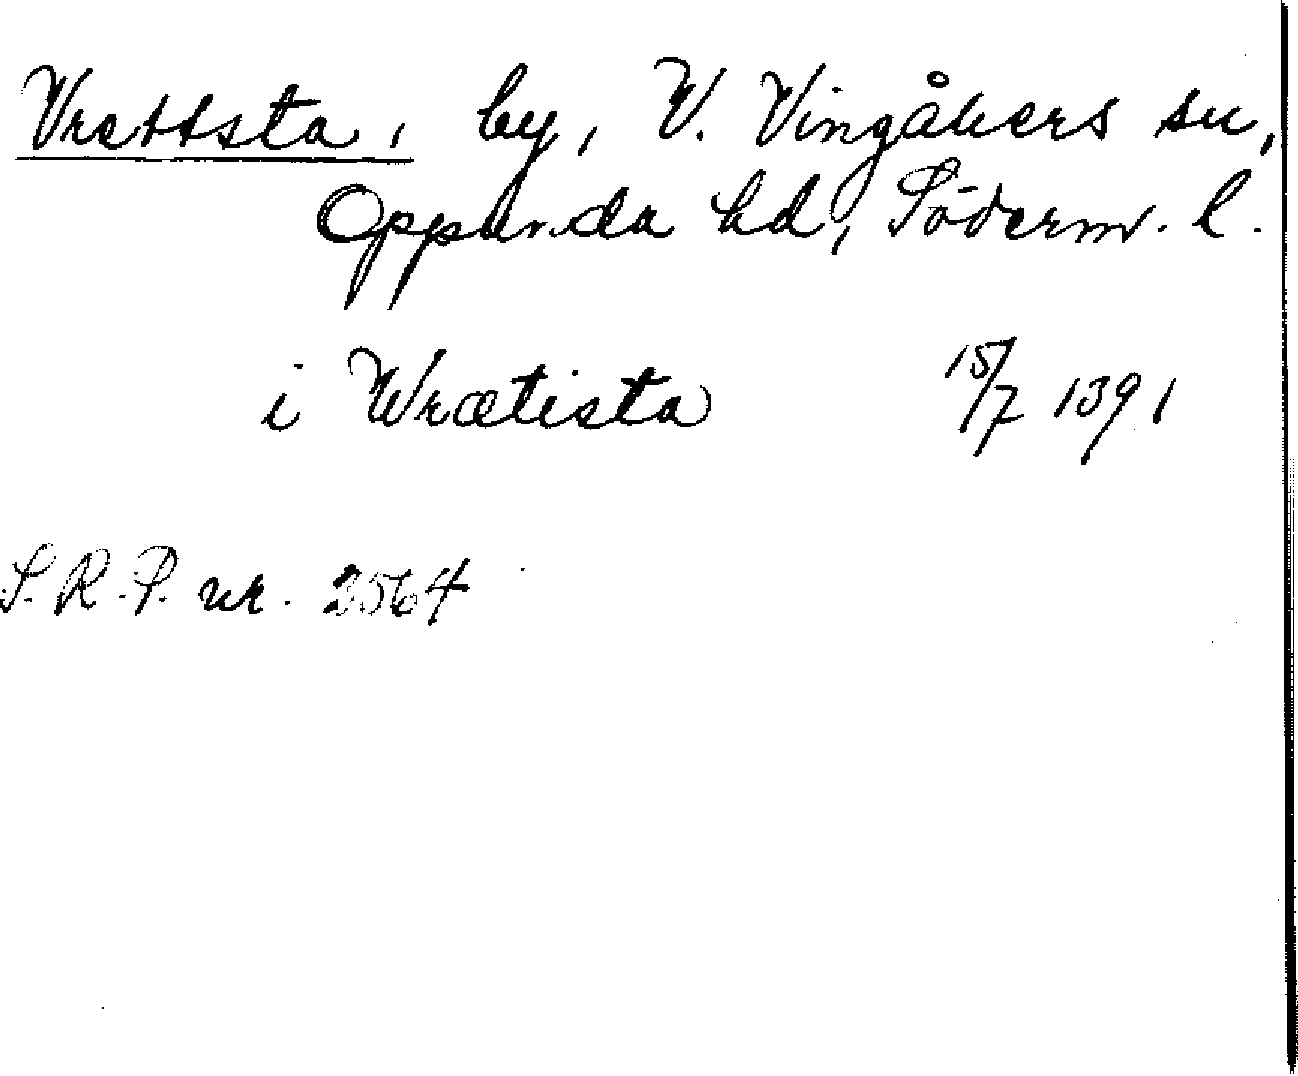 Vrettsta, by, V. Vingåkers sn,
Oppunda hd, Söderm. l.
i Wrætista 15/7 1391
S.R.P. nr. 2564